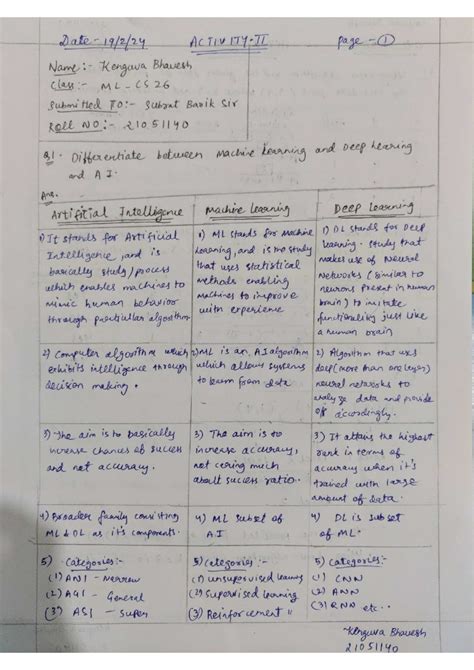 Date - 19/2/24 ACTIVITY-II Page - 1
Name:- Kenguva Bhavesh
Class:- ML-CS26
Submitted To:- Subrat Barik Sir
Roll NO:- 21051140
Q1. Differentiate between Machine Learning and Deep Learning
and AI.
Ans.
Artificial Intelligence
1) It stands for Artificial
Intelligence, and is
basically study/process
which enables machines to
mimic human behavior
through particular algorithm
2) Computer algorithm which
exhibits intelligence through
decision making.
3) The aim is to basically
increase chances of success
and not accuracy.
4) Broader family consisting
ML & DL as it's components.
5) Categories:-
(1) ANI - Narrow
(2) AGI - General
(3) ASI - Super
Machine Learning
1) ML stands for Machine
Learning, and is the study
that uses statistical
methods enabling
machines to improve
with experience
2) ML is an AI algorithm
which allows systems
to learn from data
3) The aim is to
increase accuracy,
not caring much
about success ratio.
4) ML subset of
AI
5) Categories:-
(1) Unsupervised
(2) Supervised Learning
(3) Reinforcement "
Deep Learning
1) DL stands for Deep
Learning. Study that
makes use of Neural
Networks (similar to
neurons present in human
brain) to imitate
functionality just like
a human brain
2) Algorithm that uses
deep (more than one layer)
neural networks to
analyze data and provide
accordingly.
3) It attains the highest
rank in terms of
accuracy when it's
trained with large
amount of data.
4) DL is subset
of ML.
5) Categories:-
(1) CNN
(2) ANN
(3) RNN etc..
Kenguva Bhavesh
21051140